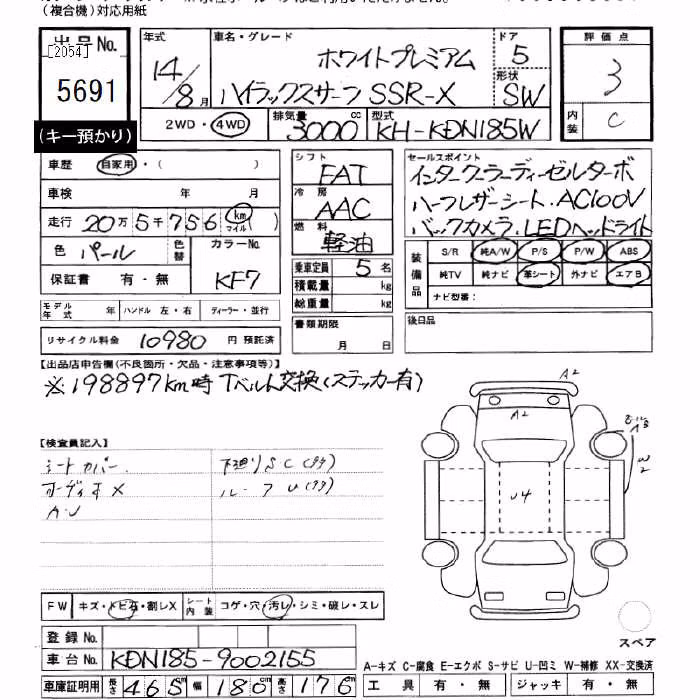 (複合機)対応用紙
出品No.
[2054]
5691
(キー預かり)
年式 車名・グレード ドア 評価点
14/8月 ホワイトプレミアム 5 3
ハイラックスサーフ SSR-X 形状 SW 内装 C
2WD・4WD 排気量 3000 cc 型式 KH-KDN185W
車歴 自家用・( )
車検 年 月
走行 20万5千756 km マイル( )
色 パール 色替 カラーNo. KF7
保証書 有・無
シフト FAT
冷房 AAC
燃料 軽油
乗車定員 5名
積載量 kg
総重量 kg
セールスポイント
インタークーラーディーゼルターボ
ハーフレザーシート・AC100V
バックカメラ・LEDヘッドライト
装備品 S/R 純A/W P/S P/W ABS
純TV 純ナビ 革シート 外ナビ エアB
ナビ型番:
モデル年式 年 ハンドル 左・右 ディーラー・並行
リサイクル料金 10980 円 預託済
書類期限 月 日
後日品
【出品店申告欄(不良箇所・欠品・注意事項等)】
※198897km時 Tベルト交換(ステッカー有)
【検査員記入】
シートカバー 下廻りSC(タタ)
オーディオX ルーフU(タタ)
A・U
A2
A2
W2
U4
FW キズ・トビ石・割レX シート内装 コゲ・穴・汚レ・シミ・破レ・スレ
スペア
登録No.
車台No. KDN185-9002155
A-キズ C-腐食 E-エクボ S-サビ U-凹ミ W-補修 XX-交換済
車庫証明用 長さ 465cm 幅 180cm 高さ 176cm 工具 有・無 ジャッキ 有・無